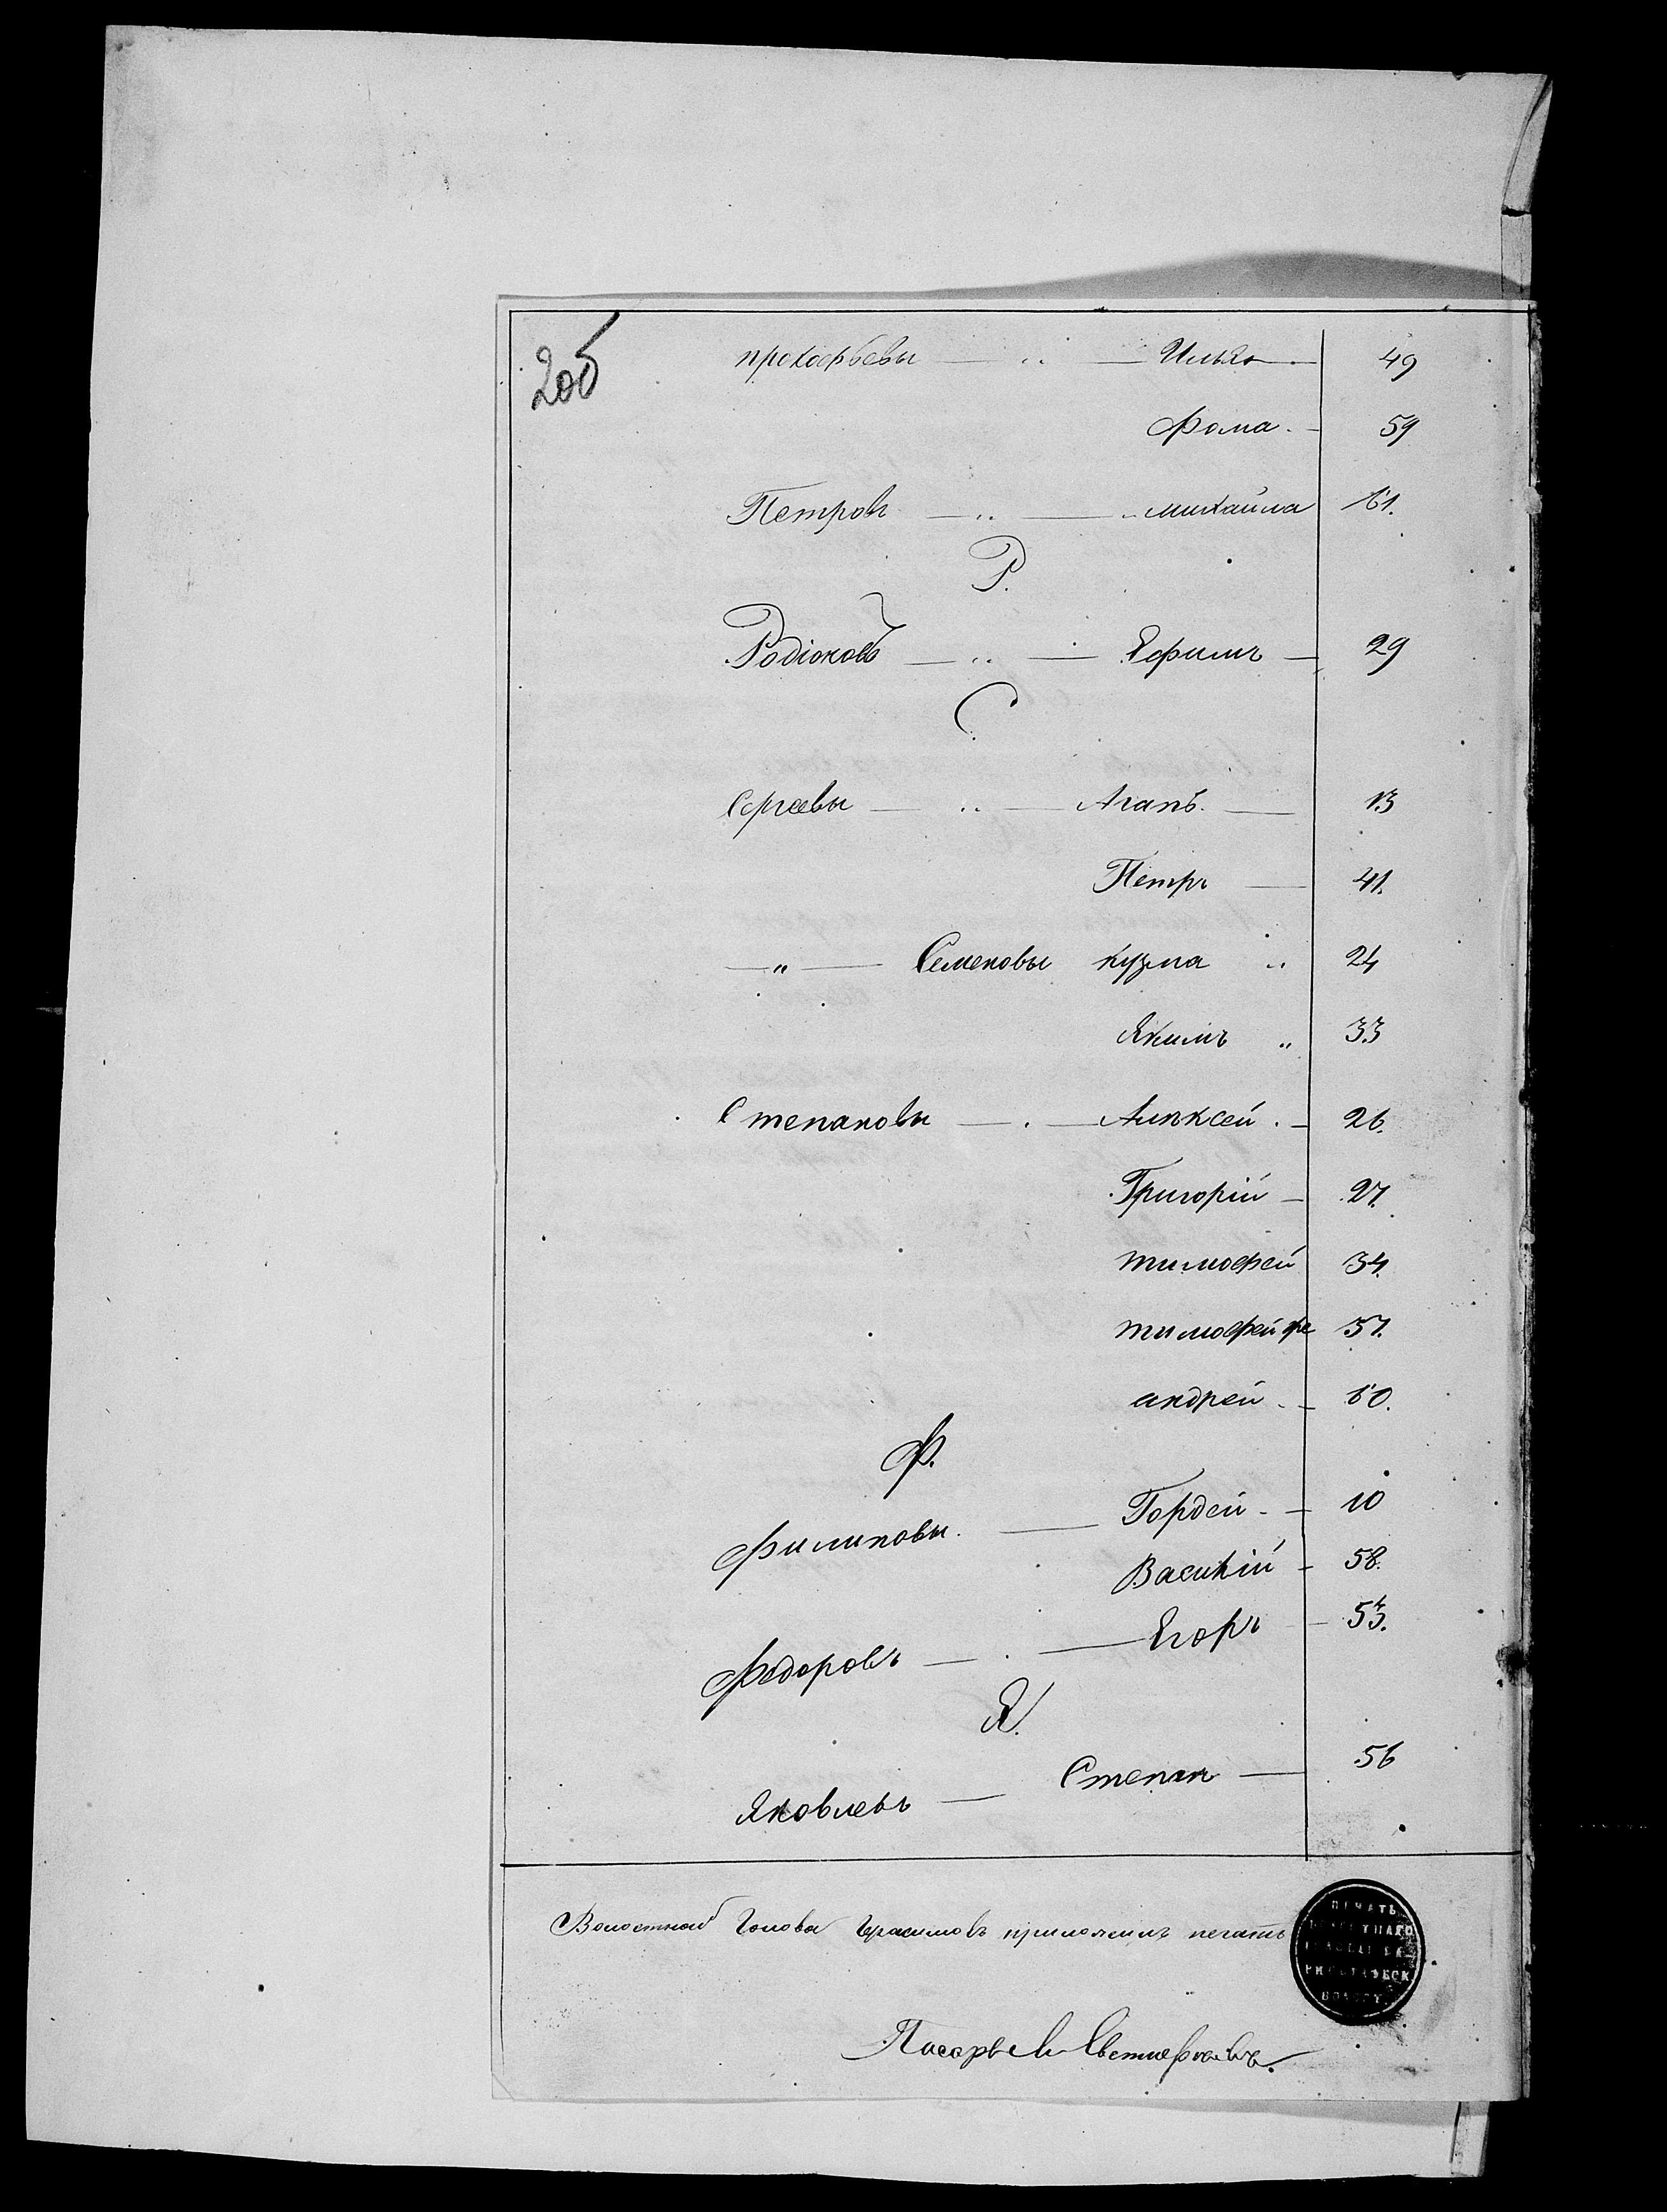 20об
прокофьевы — „ — Илья — 49
Фома. — 59
Петровъ — „ — михайла 61.
Р.
Родіоновъ — „ — Ефимъ — 29
С.
Сергѣевы — „ — Агапъ. — 13
Петръ — 41.
— „ — Семеновы кузма „ 24
Якимъ „ 33
Степановы — . — Алѣксей . — 26.
Григорій — 27.
тимофей 34.
тимофей же 37.
андрей . — 60.
Ф.
Филиповы. — Гордей - — 10
Василій — 58.
Федоровъ — . — Егоръ — 53.
Я.
Яковлевъ — Степанъ — 56
Волостной Голова Герасимовъ приложилъ печать
ПЕЧАТЬ
ВОЛОСТНАГО
Писарь